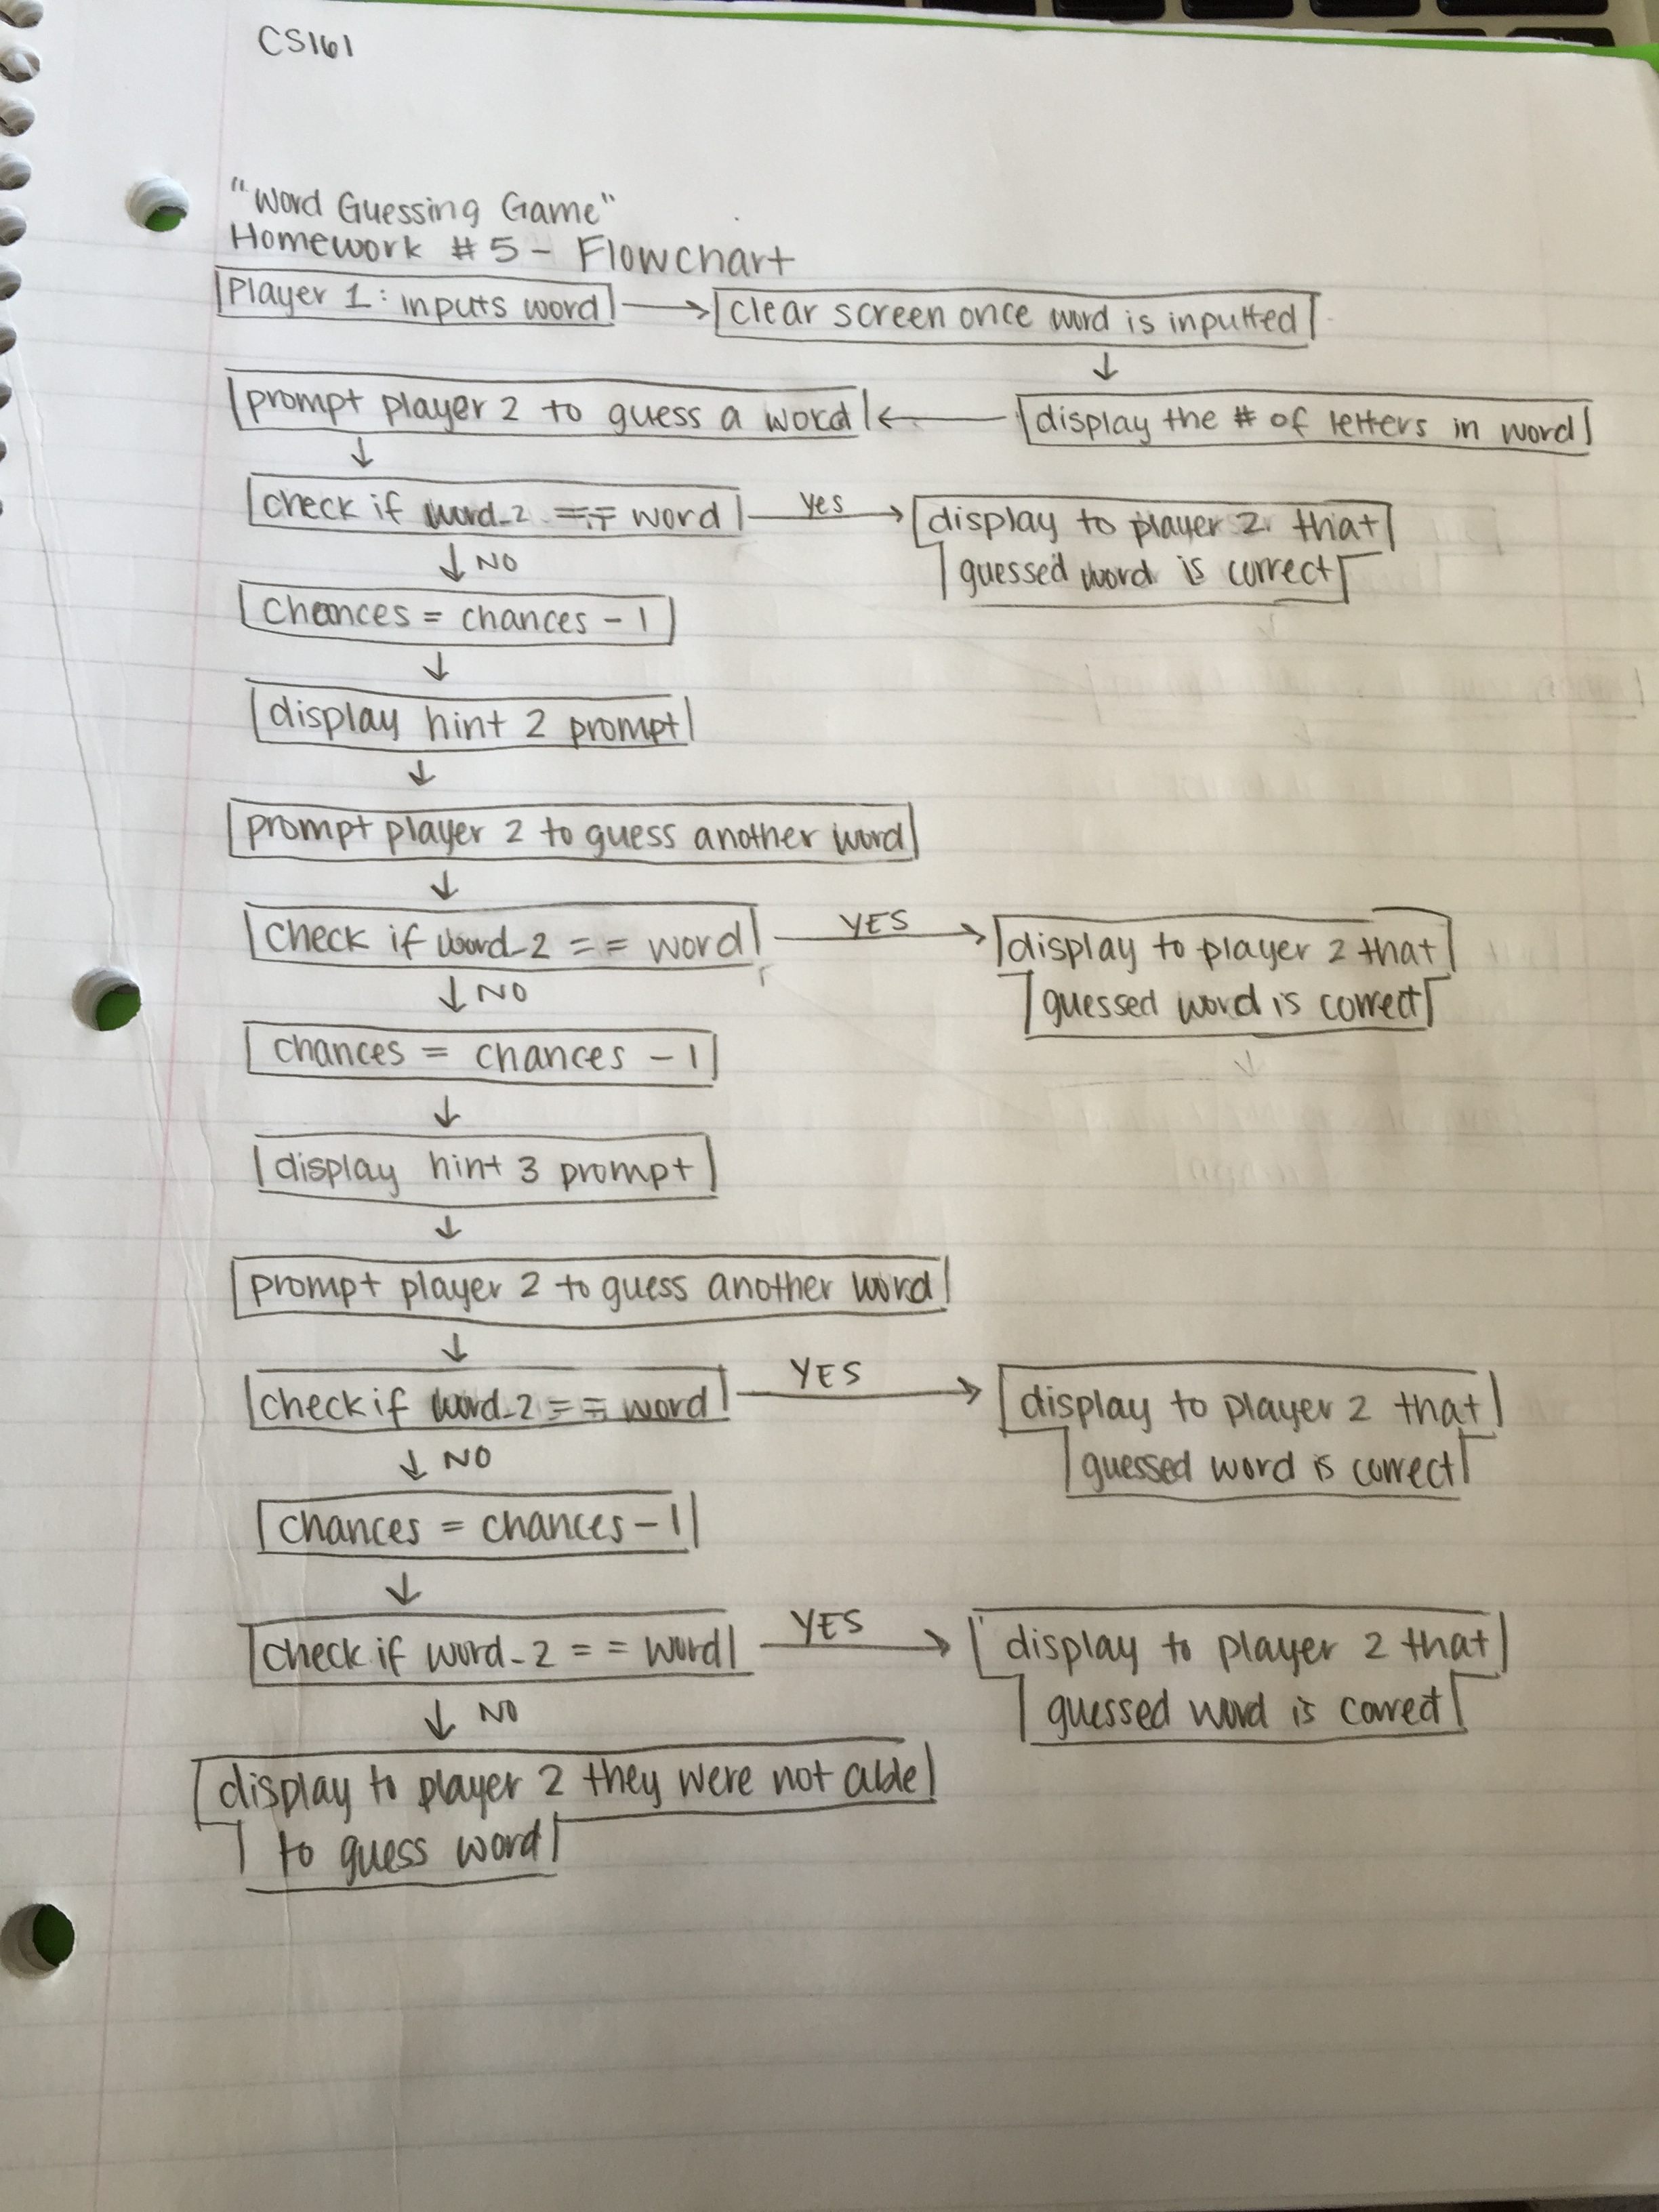 CS161
"Word Guessing Game"
Homework #5 - Flowchart
Player 1: inputs word
clear screen once word is inputted
prompt player 2 to guess a word
display the # of letters in word
check if word_2 == word
yes
display to player 2 that
guessed word is correct
NO
chances = chances - 1
display hint 2 prompt
prompt player 2 to guess another word
check if word_2 == word
YES
display to player 2 that
guessed word is correct
NO
chances = chances - 1
display hint 3 prompt
prompt player 2 to guess another word
check if word_2 == word
YES
display to player 2 that
guessed word is correct
NO
chances = chances - 1
check if word_2 == word
YES
display to player 2 that
guessed word is correct
NO
display to player 2 they were not able
to guess word